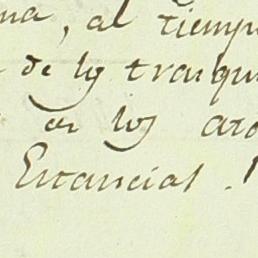 na, al tiemp
de los tranqu
en los arc
Estancias.